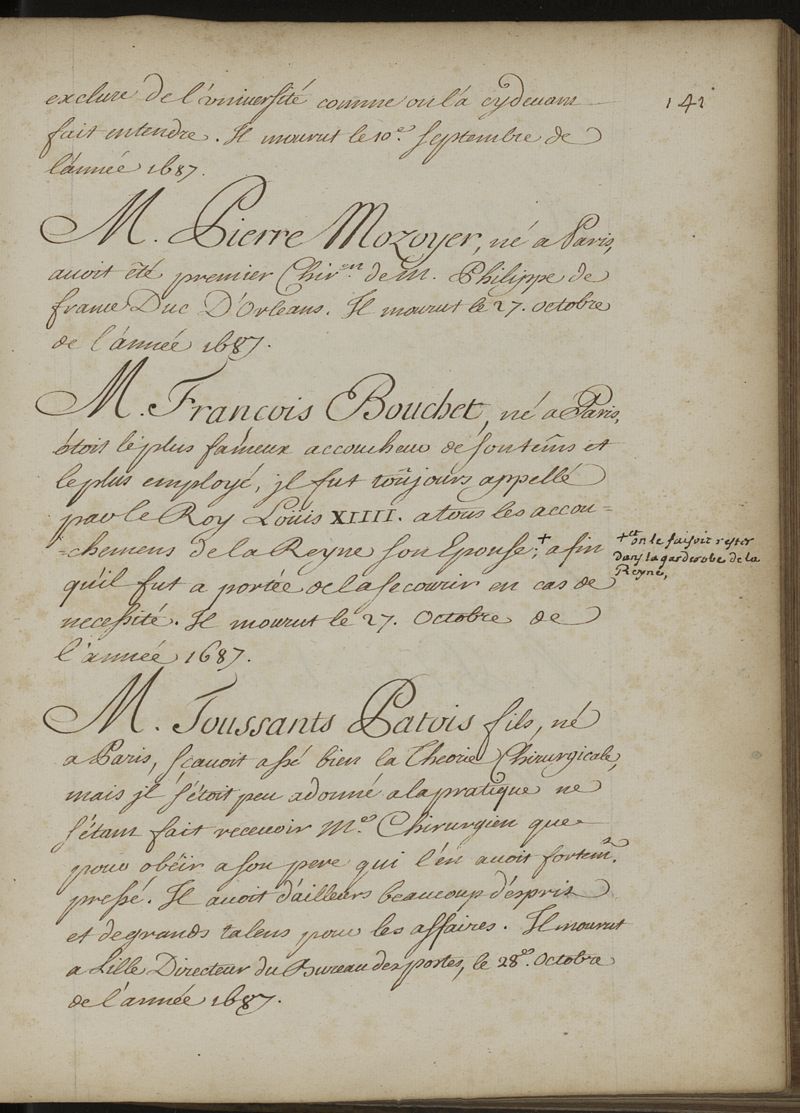 141
exclure de l'université comme on l'a cydevant
fait entendre. Il mourut le 10.e Septembre de
l'année 1687.
M. Pierre Mozoyer, né a Paris,
avoit été premier Chir.en de M. Philippe de
france Duc D'Orleans. Il mourut le 27. Octobre
de l'année 1687.
M. François Bouchet, né a Paris,
étoit le plus fameux accoucheur de son tems et
le plus employé, jl fut toujours appellé
par le Roy Loüis XIIII. a tous les accou-
-chemens de la Reyne son Epouse; + afin
qu'il fut a portée de la secourir en cas de
necessité. Il mourut le 27. Octobre de
l'année 1687.
+ et on le faisoit rester
dans la garderobe de la
Reyne,
M. Toussants Patois fils, né
a Paris, sçavoit assé bien la Theorie Chirurgicale,
mais jl s'étoit peu adonné a la pratique ne
s'étant fait recevoir M.e Chirurgien que
pour obéir a son pere qui l'en avoit fortem.t
pressé. Il avoit d'ailleurs beaucoup d'esprit
et de grands talens pour les affaires. Il mourut
a Lille Directeur du Bureau des portes, le 28.e Octobre
de l'année 1687.